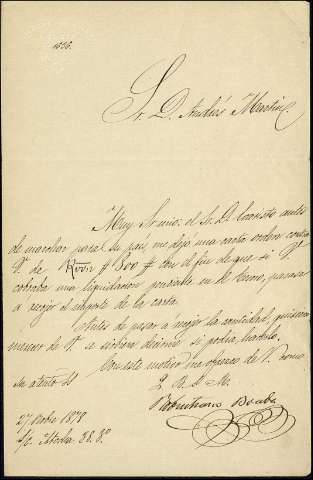 1526.
Sr. D. Andrés Martin.
Muy Sr. mio: el Sr. D. Causto antes
de marchar para su pais, me dejo una carta orden contra
V. de Rvon # 800 # con el fin de que si V.
cobraba una liquidacion pendiente en el Banco, pasase
a recojer el importe de la carta.
Antes de pasar a recojer la cantidad, quisiera
merecer de V. se sirviera decirme si podia hacerlo.
Con este motivo me ofrezco de V. como
su atento SS
Q. B. S. M.
27 Octubre 1878
S/c. Atocha 38. 3º